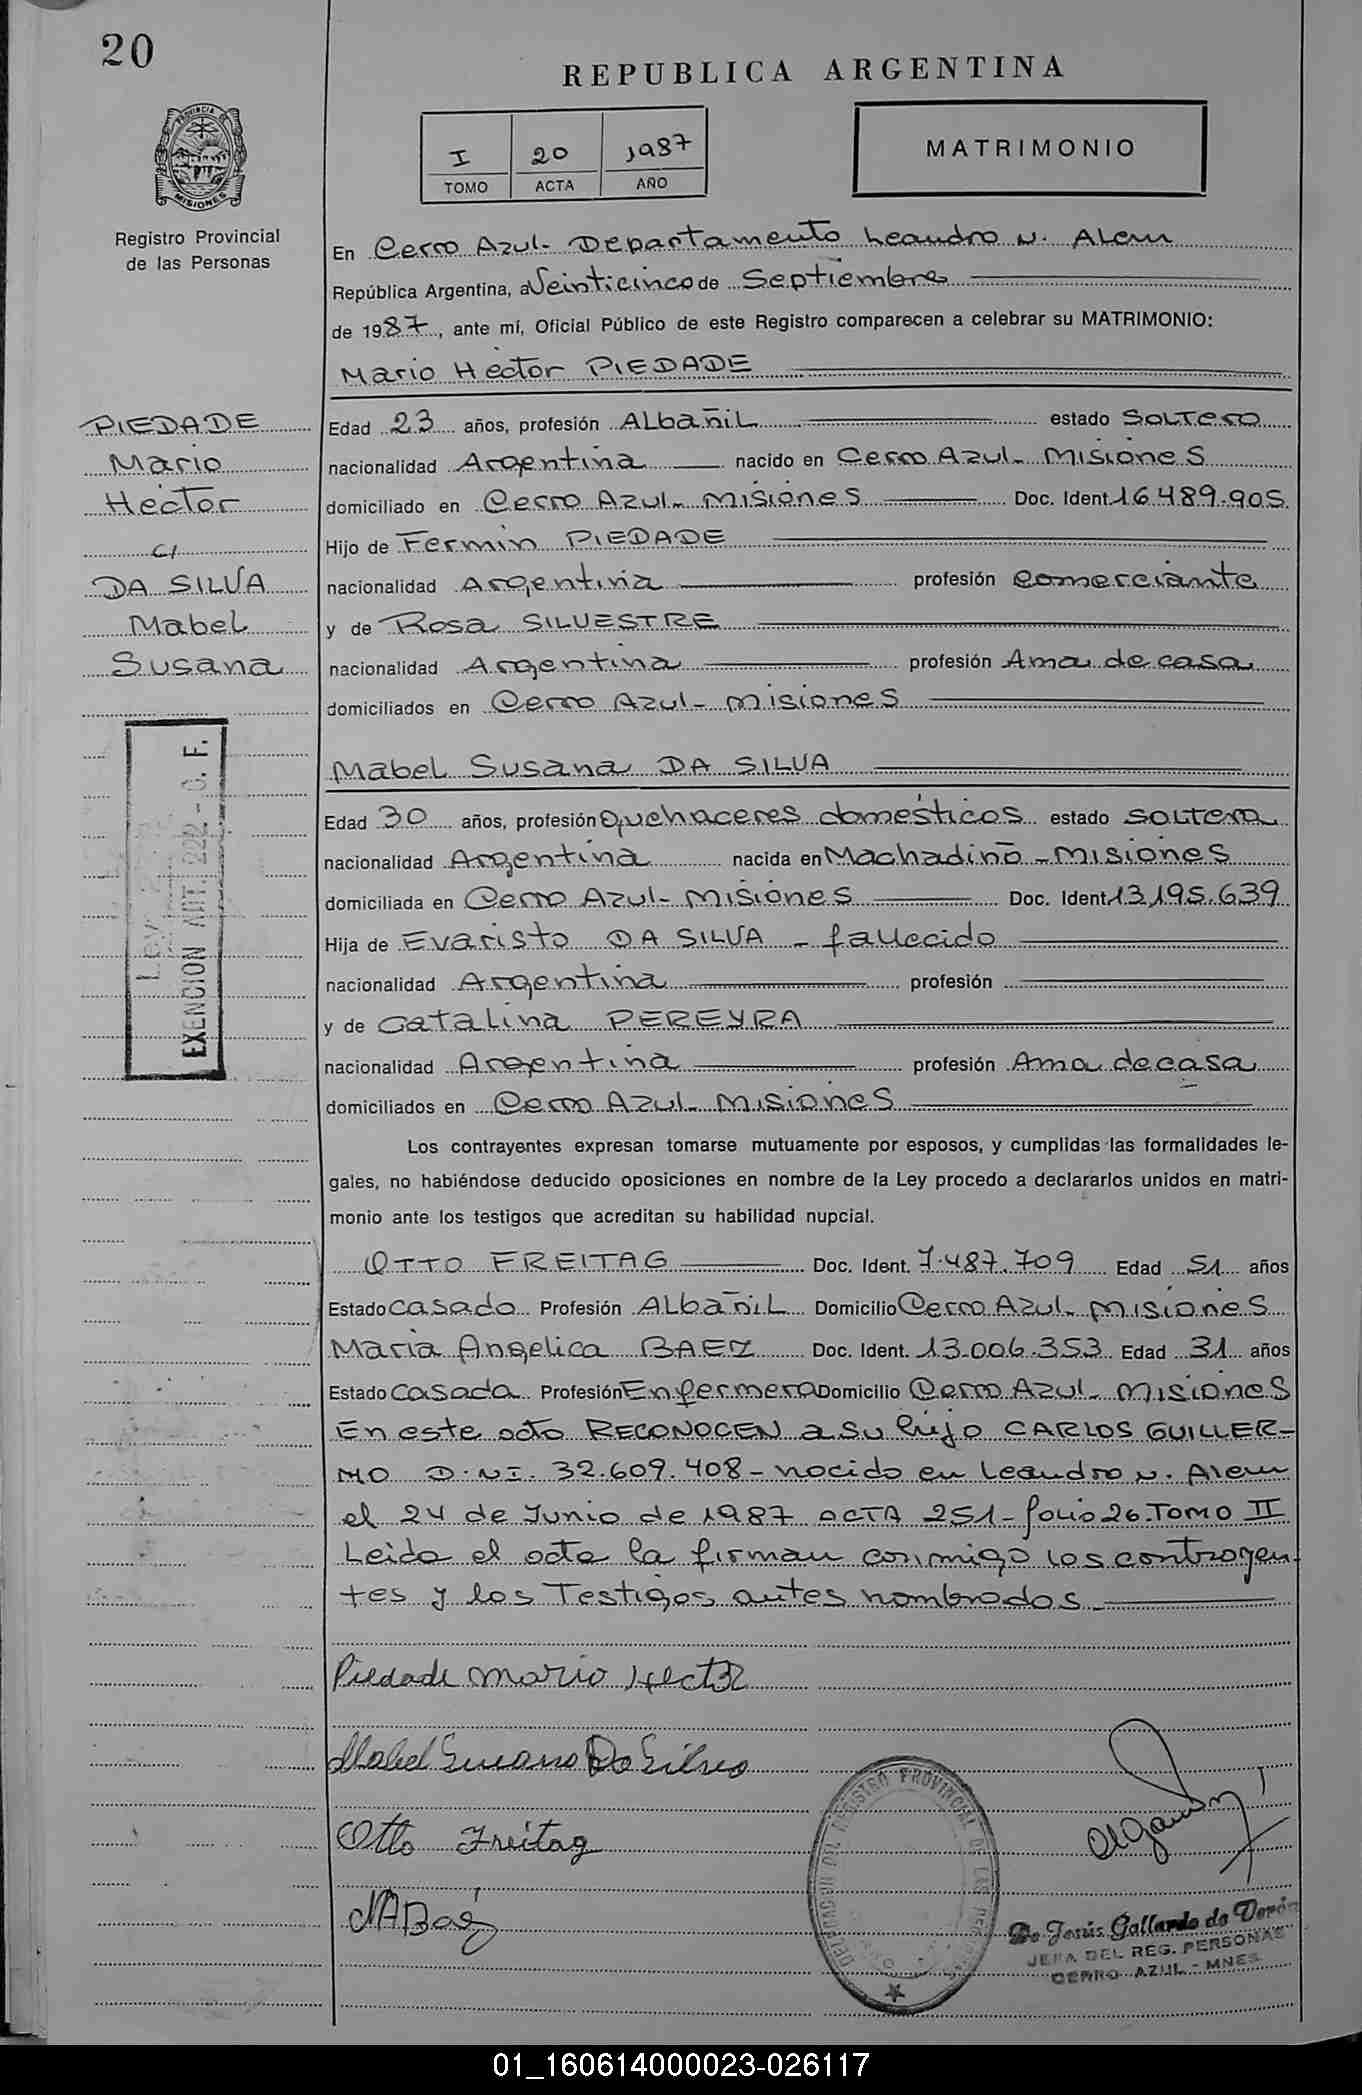 20
REPUBLICA ARGENTINA
PROVINCIA DE MISIONES
Registro Provincial
de las Personas
I 20 1987
TOMO ACTA AÑO
MATRIMONIO
En Cerro Azul- Departamento Leandro N. Alem
República Argentina, a Veinticinco de Septiembre
de 1987, ante mí, Oficial Público de este Registro comparecen a celebrar su MATRIMONIO:
Mario Hector PIEDADE
PIEDADE
Mario
Hector
c/
DA SILVA
Mabel
Susana
Edad 23 años, profesión ALbañiL estado SoLtero
nacionalidad Argentina nacido en Cerro Azul- Misiones
domiciliado en Cerro Azul- Misiones Doc. Ident. 16.489.905
Hijo de Fermin PIEDADE
nacionalidad Argentina profesión comerciante
y de Rosa SILVESTRE
nacionalidad Argentina profesión Ama de casa
domiciliados en Cerro Azul- misiones
Mabel Susana DA SILVA
Edad 30 años, profesión quehaceres domésticos estado soLtera
nacionalidad Argentina nacida en Machadino - Misiones
domiciliada en Cerro Azul- Misiones Doc. Ident. 13.195.639
Hija de Evaristo DA SILVA - fallecido
nacionalidad Argentina profesión
y de Catalina PEREYRA
nacionalidad Argentina profesión Ama de casa
domiciliados en Cerro Azul- Misiones
Ley
EXENCION ART. 222.- C. F.
Los contrayentes expresan tomarse mutuamente por esposos, y cumplidas las formalidades le-
gales, no habiéndose deducido oposiciones en nombre de la Ley procedo a declararlos unidos en matri-
monio ante los testigos que acreditan su habilidad nupcial.
OTTO FREITAG Doc. Ident. 7.487.709 Edad 51 años
Estado casado Profesión ALbañiL Domicilio Cerro Azul- Misiones
Maria Angelica BAEZ Doc. Ident. 13.006.353 Edad 31 años
Estado casada Profesión Enfermera Domicilio Cerro Azul- Misiones
En este acto RECONOCEN a su hijo CARLOS GUILLER-
MO D.N.I. 32.609.408- nacido en Leandro N. Alem
el 24 de Junio de 1987 ACTA 251- folio 26. TOMO II
Leida el acta la firman conmigo los contrayen-
tes y los Testigos antes nombrados
Piedade Mario Hector
Mabel Susana Da Silva
Otto Freitag
MABaez
DELEGACION DEL REGISTRO PROVINCIAL DE LAS PERSONAS
De Jesús Gallardo de Verón
JEFA DEL REG. PERSONAS
CERRO AZUL - MNES.
01_160614000023-026117